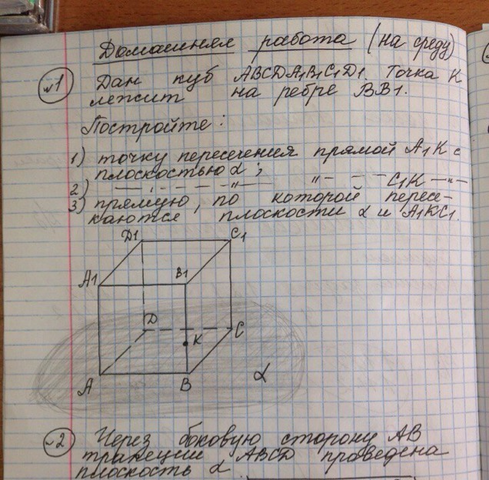 Домашняя работа (на среду)
№1 Дан куб ABCDA1B1C1D1. Точка K
лежит на ребре BB1.
Постройте:
1) точку пересечения прямой A1K с
плоскостью α;
2) —„— — — —„— „— — — C1K —„—
3) прямую, по которой пересе-
каются плоскости α и A1KC1.
D1 C1
A1 B1
D K C
A B α
№2 Через боковую сторону AB
трапеции ABCD проведена
плоскость α